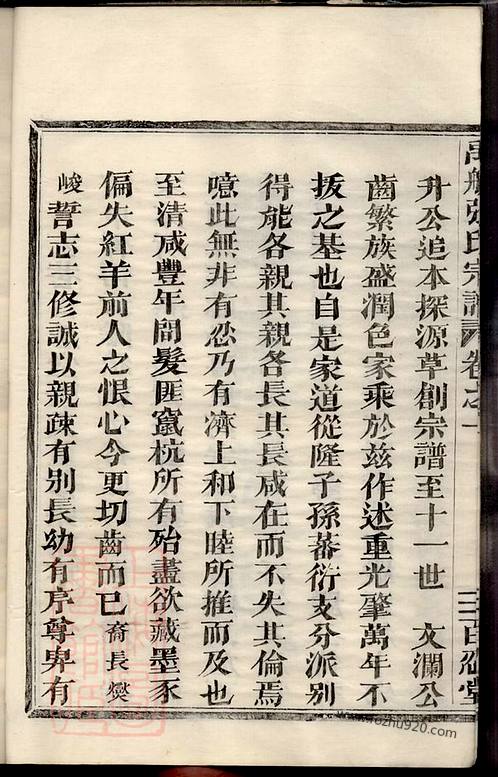 禹航張氏宗譜 卷之一 三 百忍堂
升公追本探源草創宗譜至十一世 文瀾公
齒繁族盛潤色家乘於茲作述重光肇萬年不
拔之基也自是家道從隆子孫蕃衍支分派別
得能各親其親各長其長咸在而不失其倫焉
噫此無非有忍乃有濟上和下睦所推而及也
至清咸豐年間髮匪竄杭所有殆盡欲藏墨豕
偏失紅羊前人之恨心今更切齒而已裔長燮
峻誓志三修誠以親疎有別長幼有序尊卑有
www.rozhu920.com